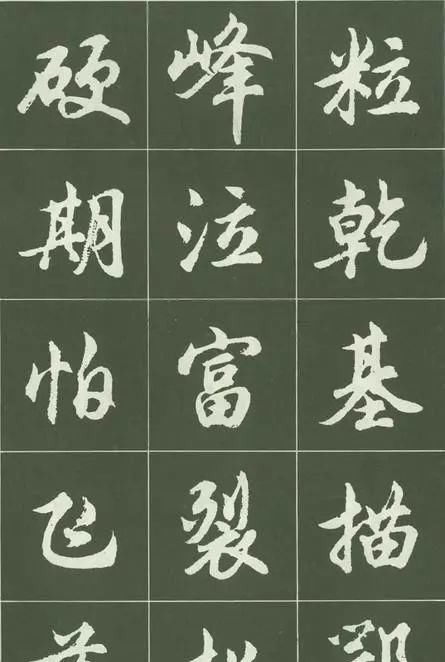 粒乾基描
峰泣富裂
硬期怕飞